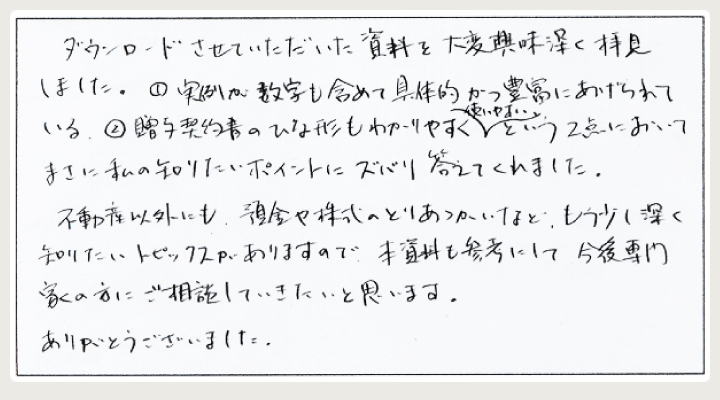 ダウンロードさせていただいた資料を大変興味深く拝見
しました。①実例が数字も含めて具体的かつ豊富にあげられて
いる、②贈与契約書のひな形もわかりやすく使いやすい、という2点において
まさに私の知りたいポイントにズバリ答えてくれました。
不動産以外にも、預金や株式のとりあつかいなど、もう少し深く
知りたいトピックスがありますので、本資料も参考にして今後専門
家の方にご相談していきたいと思います。
ありがとうございました。